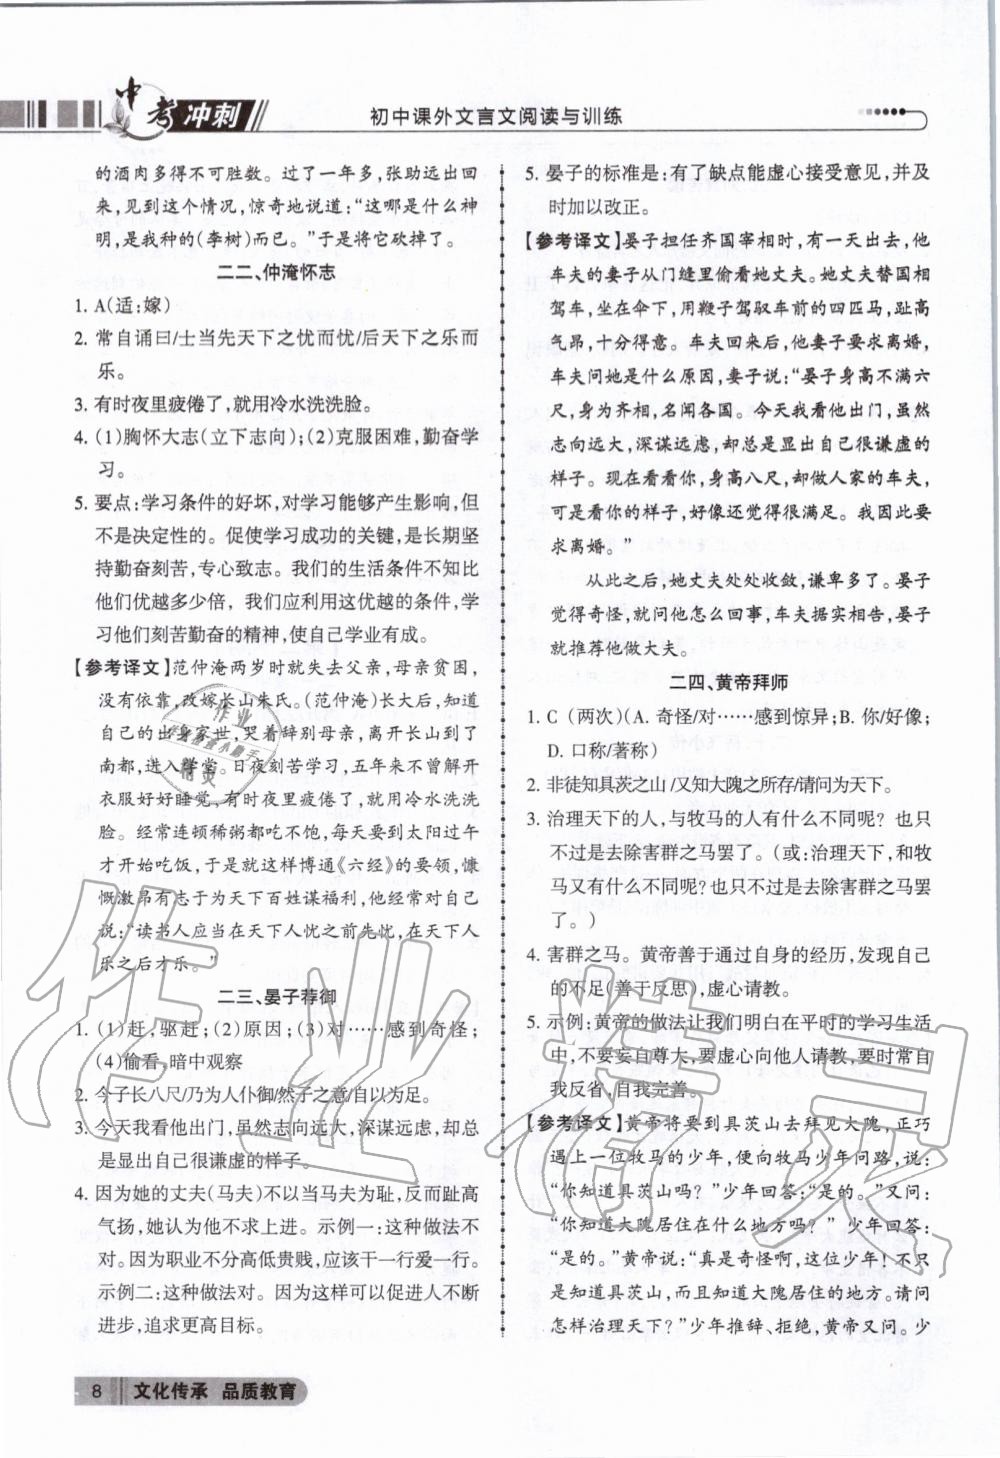 中考冲刺
初中课外文言文阅读与训练
的酒肉多得不可胜数。过了一年多,张助远出回
来,见到这个情况,惊奇地说道:“这哪是什么神
明,是我种的(李树)而已。”于是将它砍掉了。
二二、仲淹怀志
1. A(适:嫁)
2. 常自诵曰/士当先天下之忧而忧/后天下之乐而
乐。
3. 有时夜里疲倦了,就用冷水洗洗脸。
4. (1)胸怀大志(立下志向);(2)克服困难,勤奋学
习。
5. 要点:学习条件的好坏,对学习能够产生影响,但
不是决定性的。促使学习成功的关键,是长期坚
持勤奋刻苦,专心致志。我们的生活条件不知比
他们优越多少倍，我们应利用这优越的条件,学
习他们刻苦勤奋的精神,使自己学业有成。
【参考译文】范仲淹两岁时就失去父亲,母亲贫困,
没有依靠,改嫁长山朱氏。(范仲淹)长大后,知道
自己的出身家世,哭着辞别母亲,离开长山到了
南都,进入学堂。日夜刻苦学习,五年来不曾解开
衣服好好睡觉,有时夜里疲倦了,就用冷水洗洗
脸。经常连顿稀粥都吃不饱,每天要到太阳过午
才开始吃饭,于是就这样博通《六经》的要领,慷
慨激昂有志于为天下百姓谋福利,他经常对自己
说:“读书人应当在天下人忧之前先忧,在天下人
乐之后才乐。”
二三、晏子荐御
1. (1)赶,驱赶;(2)原因;(3)对……感到奇怪;
(4)偷看,暗中观察
2. 今子长八尺/乃为人仆御/然子之意/自以为足。
3. 今天我看他出门,虽然志向远大,深谋远虑,却总
是显出自己很谦虚的样子。
4. 因为她的丈夫(马夫)不以当马夫为耻,反而趾高
气扬,她认为他不求上进。示例一:这种做法不
对。因为职业不分高低贵贱,应该干一行爱一行。
示例二:这种做法对。因为这样可以促进人不断
进步,追求更高目标。
5. 晏子的标准是:有了缺点能虚心接受意见,并及
时加以改正。
【参考译文】晏子担任齐国宰相时,有一天出去,他
车夫的妻子从门缝里偷看她丈夫。她丈夫替国相
驾车,坐在伞下,用鞭子驾驭车前的四匹马,趾高
气昂,十分得意。车夫回来后,他妻子要求离婚,
车夫问她是什么原因,妻子说:“晏子身高不满六
尺,身为齐相,名闻各国。今天我看他出门,虽然
志向远大,深谋远虑,却总是显出自己很谦虚的
样子。现在看看你,身高八尺,却做人家的车夫,
可是看你的样子,好像还觉得很满足。我因此要
求离婚。”
从此之后,她丈夫处处收敛,谦卑多了。晏子
觉得奇怪,就问他怎么回事,车夫据实相告,晏子
就推荐他做大夫。
二四、黄帝拜师
1. C (两次)(A. 奇怪/对……感到惊异;B. 你/好像;
D. 口称/著称)
2. 非徒知具茨之山 /又知大隗之所存/请问为天下。
3. 治理天下的人,与牧马的人有什么不同呢? 也只
不过是去除害群之马罢了。(或:治理天下,和牧
马又有什么不同呢?也只不过是去除害群之马罢
了。)
4. 害群之马。黄帝善于通过自身的经历,发现自己
的不足(善于反思),虚心请教。
5. 示例:黄帝的做法让我们明白在平时的学习生活
中,不要妄自尊大,要虚心向他人请教,要时常自
我反省,自我完善。
【参考译文】黄帝将要到具茨山去拜见大隗,正巧
遇上一位牧马的少年,便向牧马少年问路,说:
“你知道具茨山吗?”少年回答:“是的。”又问:
“你知道大隗居住在什么地方吗?”少年回答:
“是的。”黄帝说:“真是奇怪啊,这位少年!不只
是知道具茨山,而且知道大隗居住的地方。请问
怎样治理天下?”少年推辞、拒绝,黄帝又问。少
8 文化传承 品质教育
作业精灵